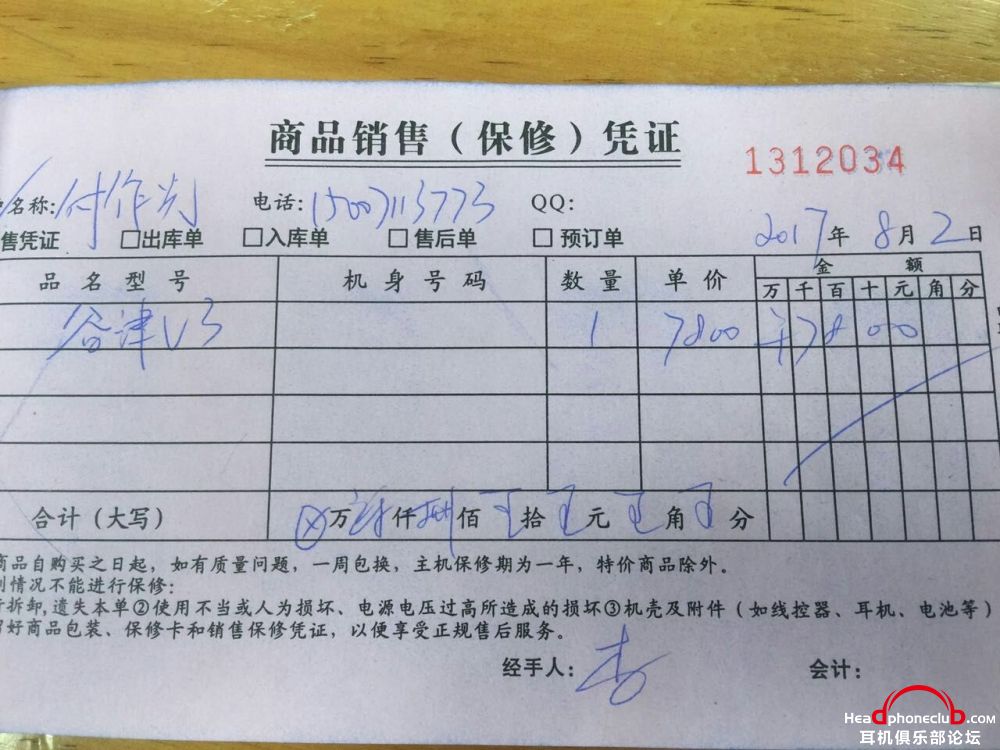 商品销售（保修）凭证
1312034
名称: 付作为 电话: 15007113773 QQ:
售凭证 □出库单 □入库单 □售后单 □预订单 2017年8月2日
品名型号 机身号码 数量 单价 金额
万 千 百 十 元 角 分
谷津U3 1 7800 ¥7800
合计（大写） ⊗万 柒仟 捌佰 拾 元 角 分
商品自购买之日起，如有质量问题，一周包换，主机保修期为一年，特价商品除外。
列情况不能进行保修：
行拆卸,遗失本单②使用不当或人为损坏、电源电压过高所造成的损坏③机壳及附件（如线控器、耳机、电池等）
好商品包装、保修卡和销售保修凭证，以便享受正规售后服务。
经手人: 会计:
Headphoneclub.com
耳机俱乐部论坛